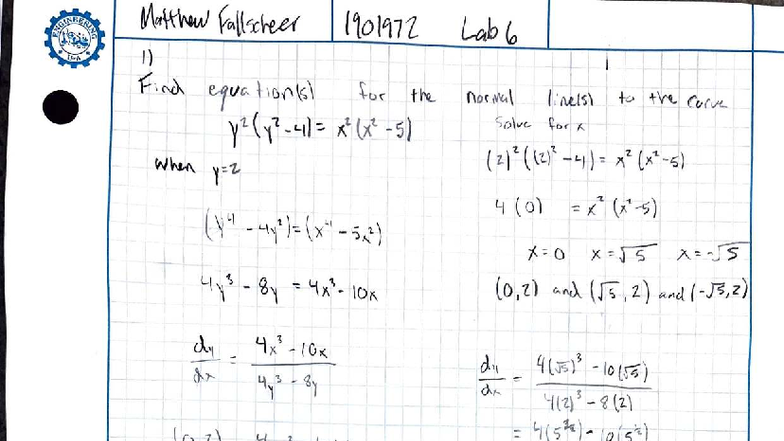 ENGINEERING
Matthew Fallscheer 1901972 Lab 6
1)
Find equation(s) for the normal line(s) to the curve
y²(y²-4) = x²(x²-5)
when y=2
(y⁴ - 4y²) = (x⁴ - 5x²)
4y³ - 8y = 4x³ - 10x
dy/dx = (4x³ - 10x)/(4y³ - 8y)
Solve for x
(2)²((2)² - 4) = x²(x²-5)
4(0) = x²(x²-5)
x=0 x=√5 x=-√5
(0,2) and (√5,2) and (-√5,2)
dy/dx = (4(√5)³ - 10(√5))/(4(2)³ - 8(2))